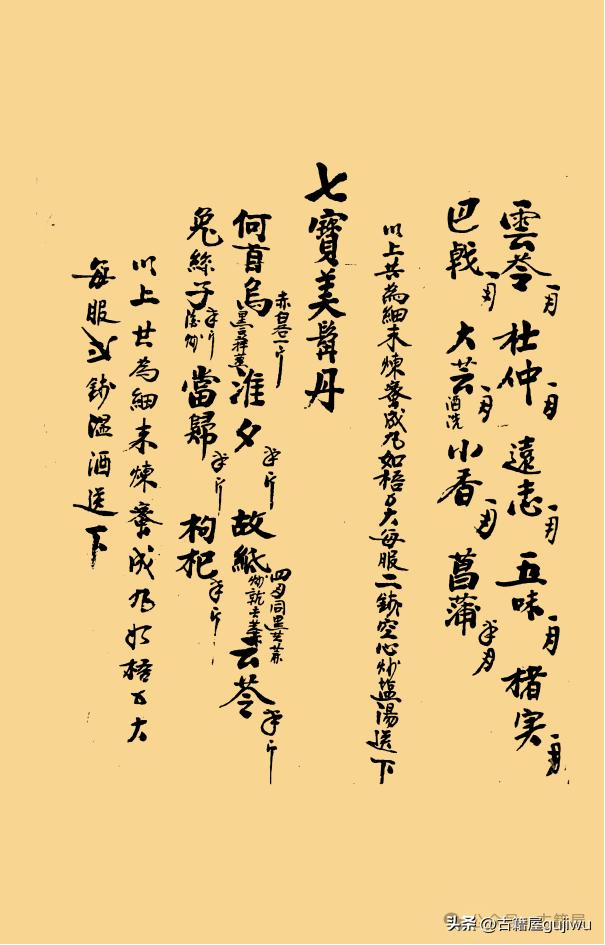 雲苓一両 杜仲一両 遠志一両 五味一両 楮实一両
巴戟一両 大芸酒洗一両 小香一両 菖蒲半両
以上共為細末煉蜜成丸如梧子大每服二錢空心炒盐湯送下
七寳美髯丹
何首烏赤白各一斤黑豆拌蒸 淮夕半斤 故紙四両同黑芝蔴炒就去芝蔴 云苓半斤
兔絲子半斤酒炒 當歸半斤 枸杞半斤
以上共為細末煉蜜成丸如梧子大
每服弍錢溫酒送下
头条 @古籍屋gujiwu